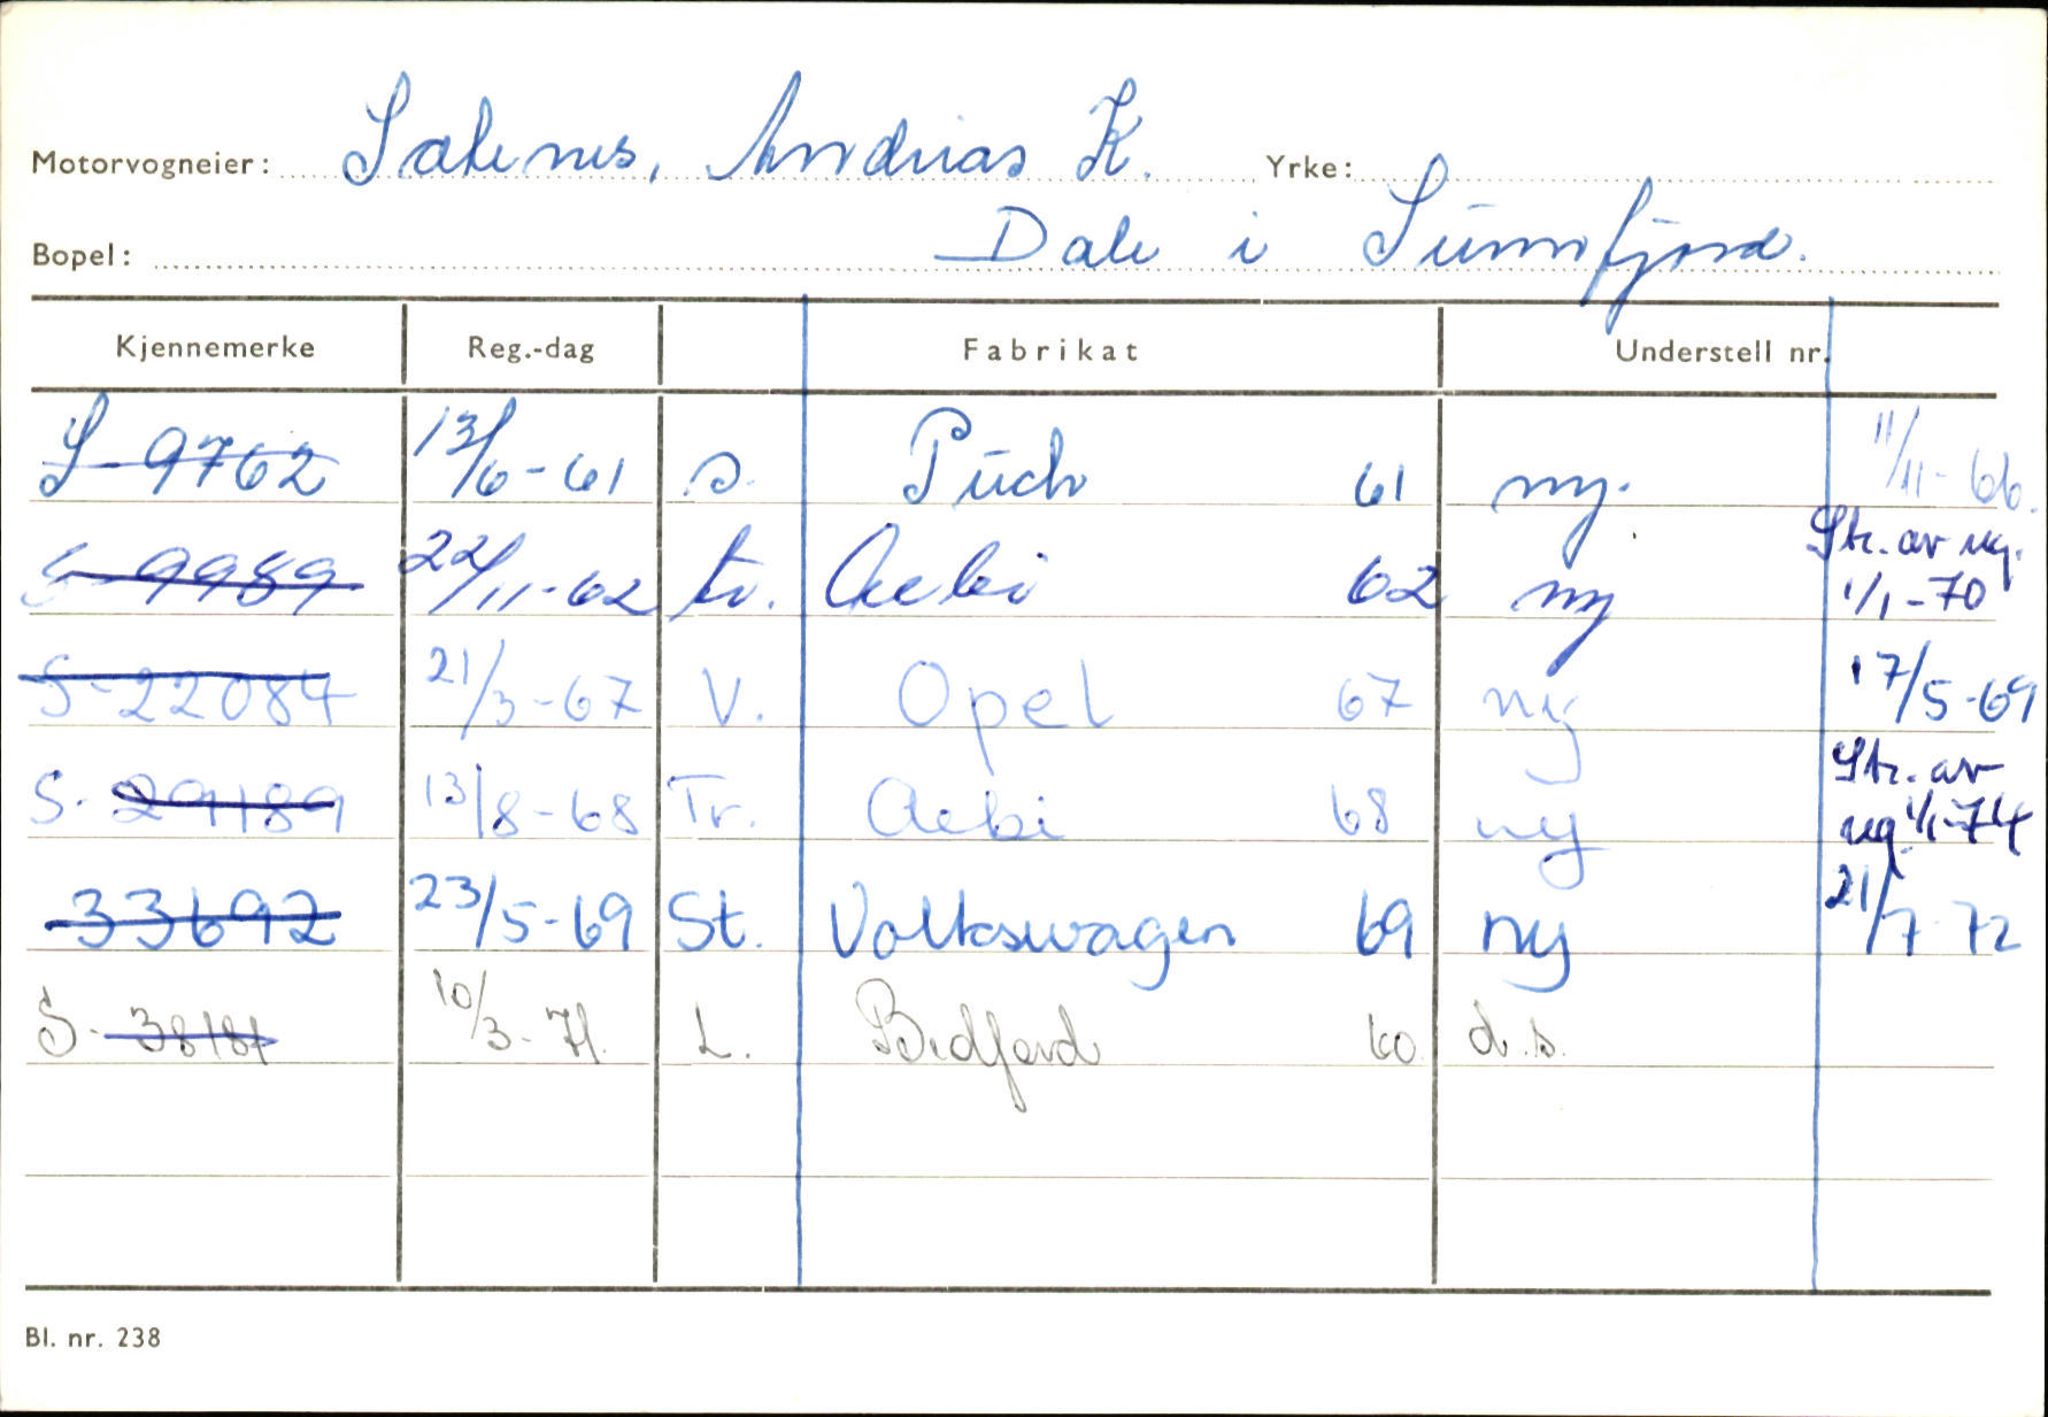 Motorvogneier: Sakenes, Andreas K. Yrke:
Bopel: Dale i Sunnfjord.
Kjennemerke Reg.-dag Fabrikat Understell nr.
S-9762 13/6-61 s. Puch 61 ny. 11/11-66.
S-9989 22/11-62 tr. Aebi 62 ny Str. av reg. 1/1-70
S-22084 21/3-67 V. Opel 67 ny 17/5-69
S-29189 13/8-68 Tr. Aebi 68 ny Str. av reg. 1/1-74
33692 23/5-69 St. Volkswagen 69 ny 21/7-72
S-38181 10/3-71. L. Bedford 60 d.s.
Bl. nr. 238